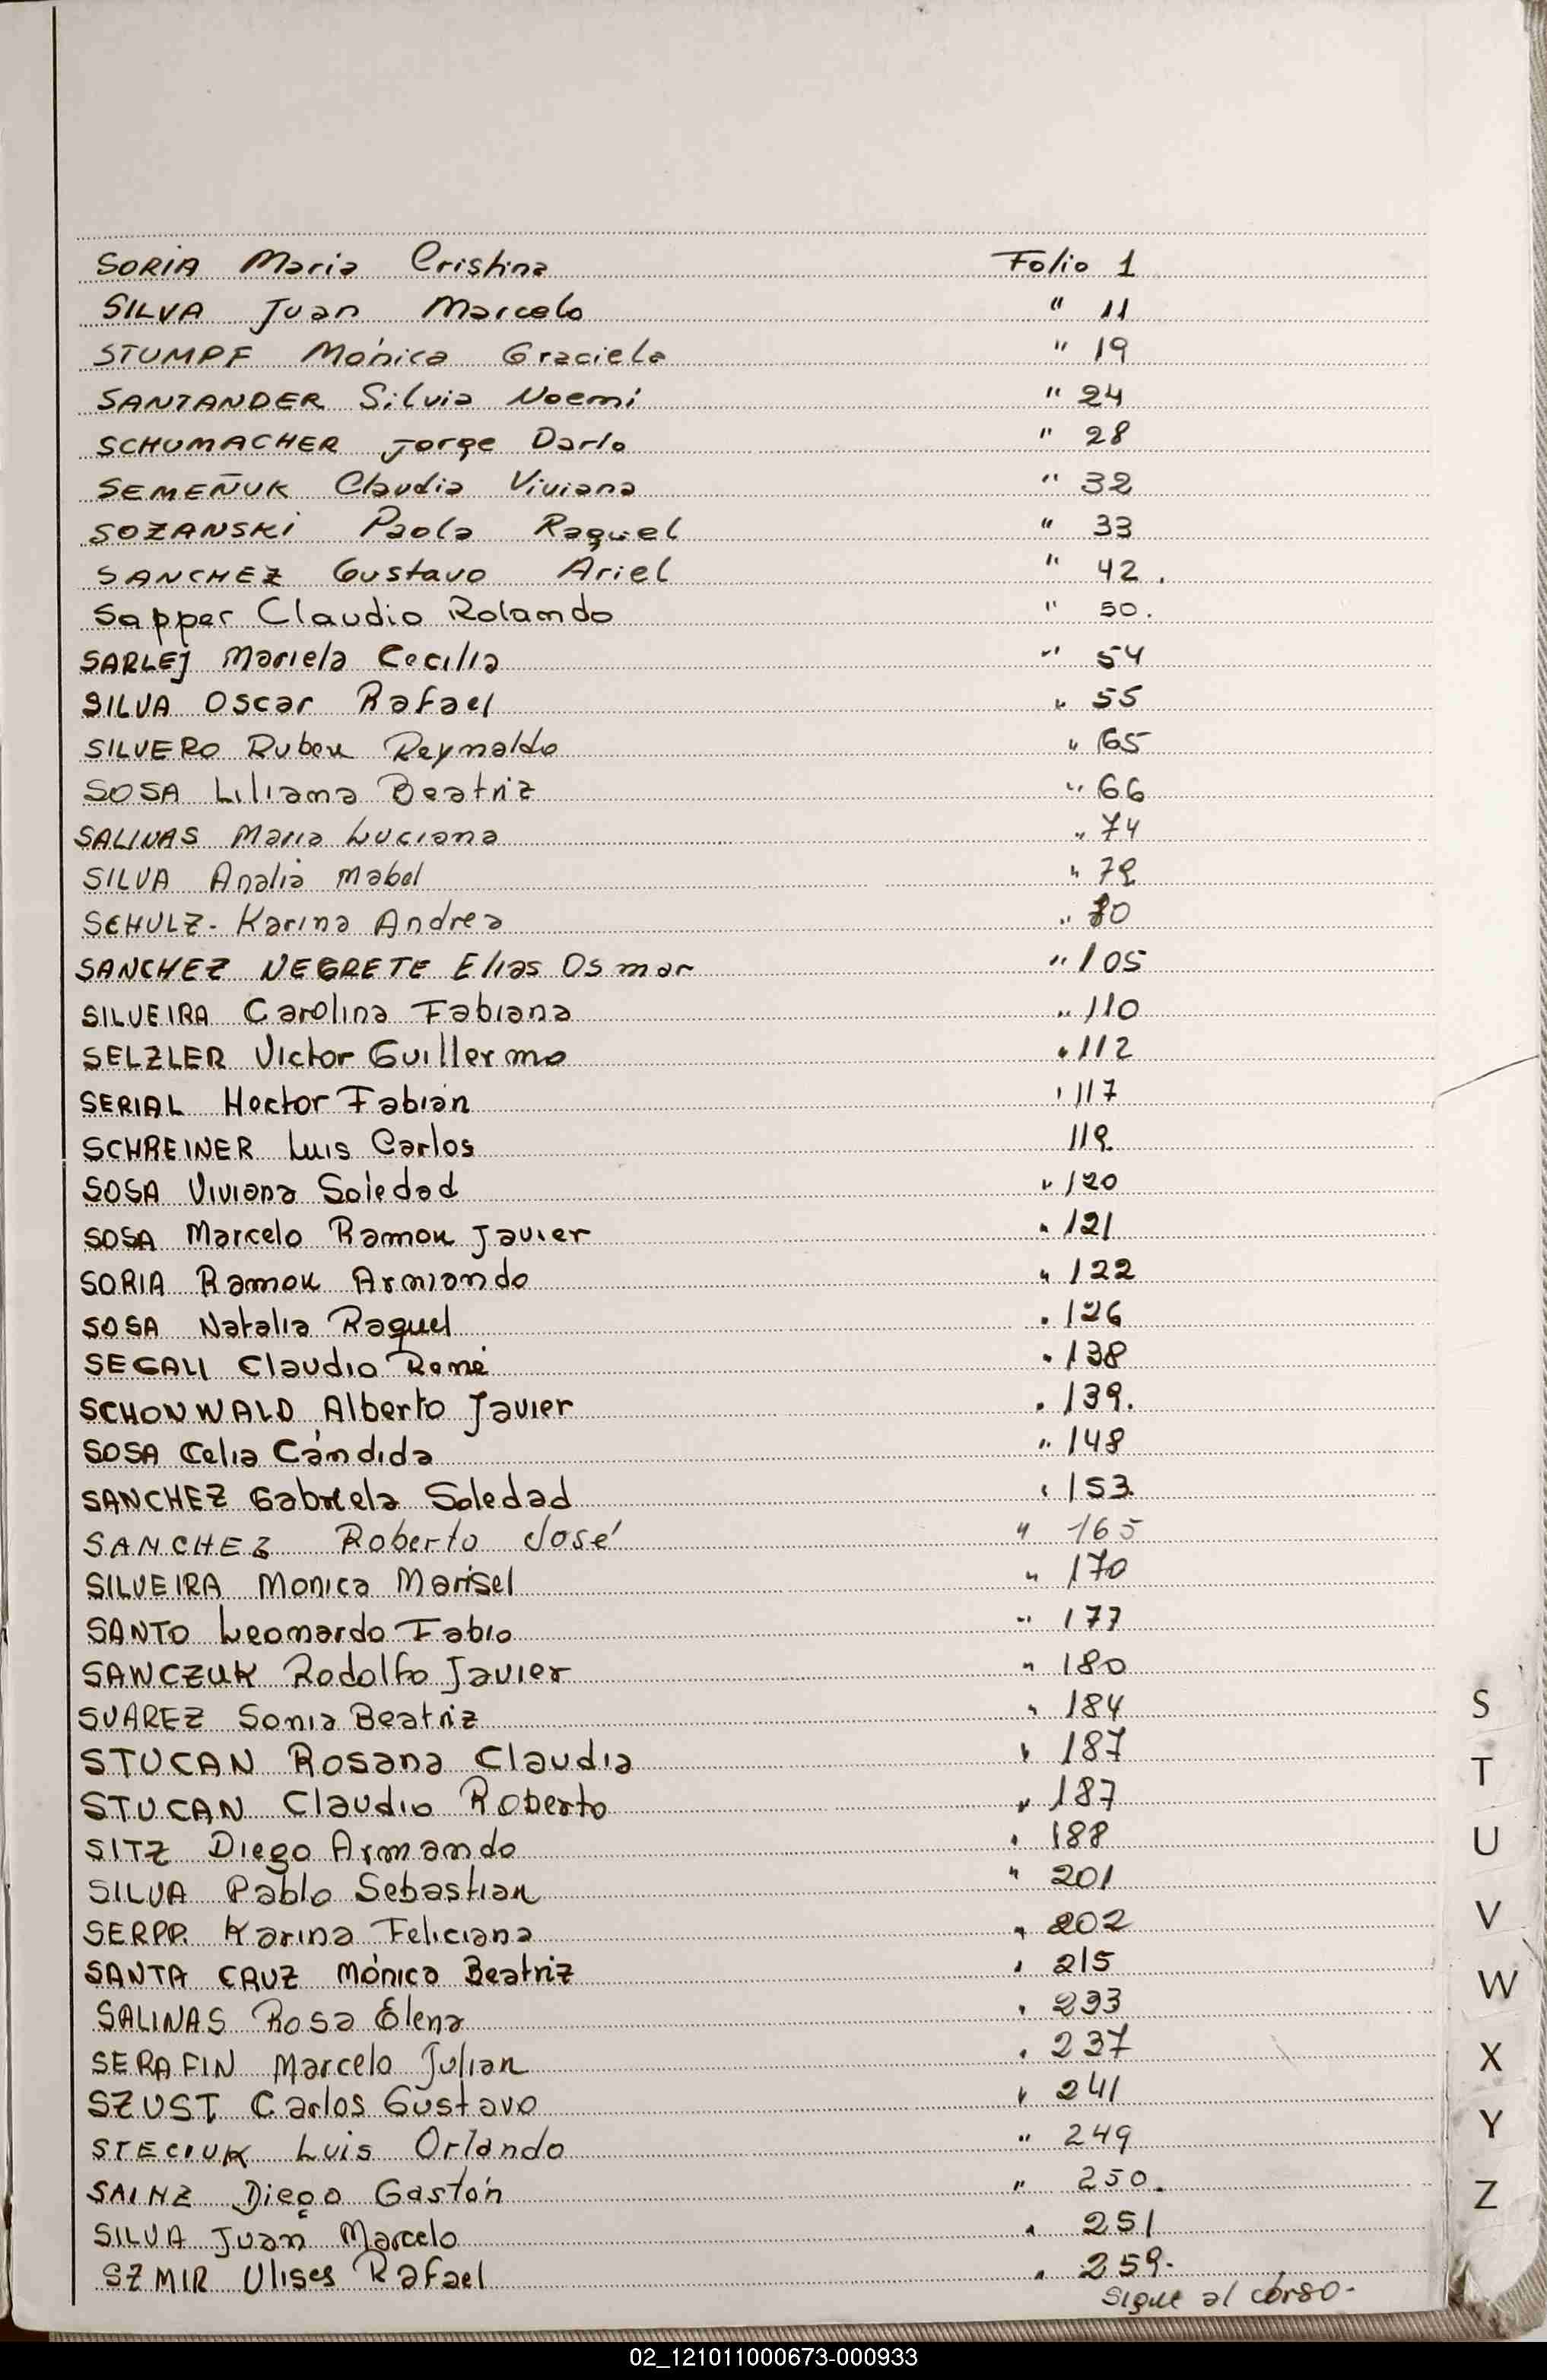 SORIA Maria Cristina Folio 1
SILVA Juan Marcelo " 11
STUMPF Mónica Graciela " 19
SANTANDER Silvia Noemi " 24
SCHUMACHER Jorge Darío " 28
SEMEÑUK Claudia Viviana " 32
SOZANSKI Paola Raquel " 33
SANCHEZ Gustavo Ariel " 42.
Sapper Claudio Rolando " 50.
SARLEJ Mariela Cecilia " 54
SILVA Oscar Rafael " 55
SILVERO Ruben Reynaldo " 65
SOSA Liliana Beatriz " 66
SALINAS Maria Luciana " 74
SILVA Analia Mabel " 79
SCHULZ - Karina Andrea " 80
SANCHEZ NEGRETE Elias Osmar " 105
SILVEIRA Carolina Fabiana " 110
SELZLER Victor Guillermo " 112
SERIAL Hector Fabián " 117
SCHREINER Luis Carlos 119
SOSA Viviana Soledad " 120
SOSA Marcelo Ramon Javier " 121
SORIA Ramon Armando " 122
SOSA Natalia Raquel " 126
Claudio René " 138
SCHONWALD Alberto Javier " 139.
SOSA Celia Cándida " 148
SANCHEZ Gabriela Soledad " 153
SANCHEZ Roberto José " 165
SILVEIRA Monica Marisel " 170
SANTO Leonardo Fabio " 177
SAWCZUK Rodolfo Javier " 180
SUAREZ Sonia Beatriz " 184
STUCAN Rosana Claudia " 187
STUCAN Claudio Roberto " 187
SITZ Diego Armando " 188
SILVA Pablo Sebastian " 201
Karina Feliciana " 202
SANTA CRUZ Mónica Beatriz " 215
SALINAS Rosa Elena " 233
SERAFIN Marcelo Julian " 237
SZUST Carlos Gustavo " 241
STECIUK Luis Orlando " 249
SAINZ Diego Gastón " 250.
SILVA Juan Marcelo " 251
SZMIR Ulises Rafael " 259.
Sigue al
S
T
U
V
W
X
Y
Z
02_121011000673-000933